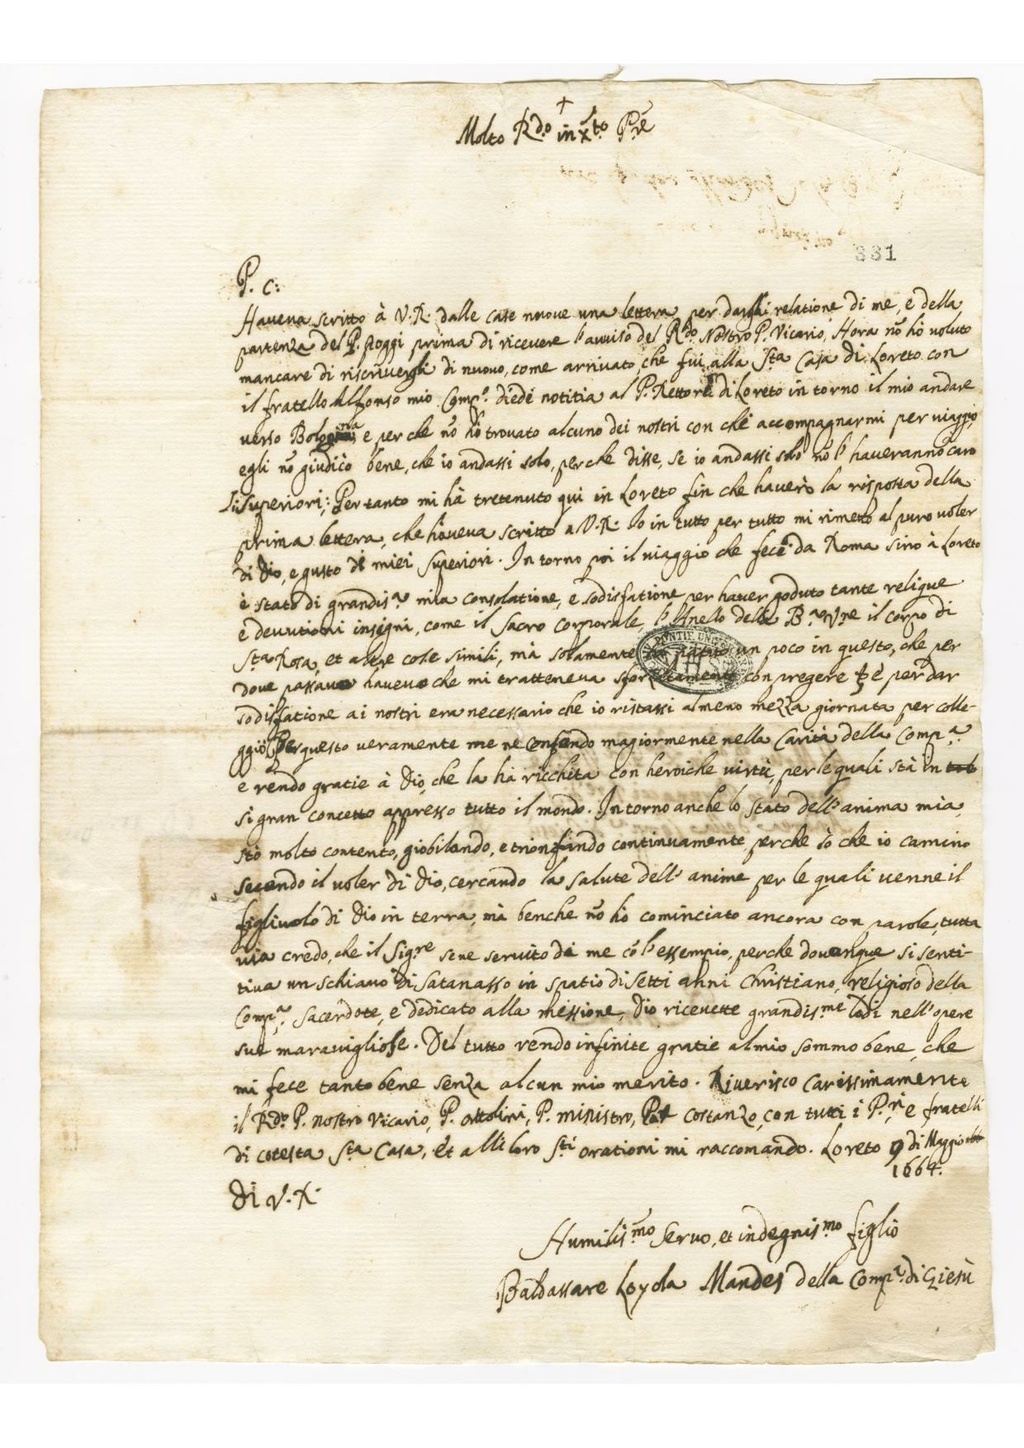 +
Molto Rdo in Xto Pre
331
P. C:
Haueua scritto à V.R. dalle case nuoue una lettera, per darli relatione di me, e della
partenza del P. Poggi prima di riceuere l'auuiso del Rdo Nostro P. Vicario, Hora nõ hò voluto
mancare di riscriuergli di nuouo, come arriuato, che fui alla Sta Casa di Loreto con
il fratello Alfonso mio Compo. diede notitia al P. Rettore di Loreto in torno il mio andare
verso Bologna e per che nõ hò trouato alcuno dei nostri con che accompagnarmi per uiaggio
egli nõ giudicò bene, che io andassi solo, perche disse, se io andassi solo nõ l'haueranno caro
li Superiori; Per tanto mi hà tretenuto qui in Loreto fin che hauerò la risposta della
prima lettera, che haueua scritto a V.R. Io in tutto per tutto mi rimetto al puro voler
di Dio, e gusto di miei Superiori. In torno poi il uiaggio che fece da Roma sino à Loreto
è stato di grandisa. mia consolatione, e sodisfatione per hauer goduto tante relique
e deuutioni insigni, come il Sacro Corporale, l'Anello della Ba Vne il corpo di
Sta Rosa, et altre cose simili, mà solamente hò patito un poco in questo, che per
doue passauo haueuo che mi tratteneua sforzatamente con pregere e per dar
sodisfatione ai nostri era necessario che io ristassi almeno mezza giornata per colle-
ggio Per questo ueramente me ne confondo magiormente nella Carità della Compa.
e rendo gratie à Dio, che la hà ricchita con heroiche uirtù, per le quali stà in
si gran concetto appresso tutto il mondo. In torno anche lo stato dell'anima mia,
stò molto contento, giobilando, e trionfando continuamente, perche sò che io camino
secondo il uoler di Dio, cercando la salute dell'anime per le quali uenne il
figliuolo di Dio in terra, mà benche nõ hò cominciato ancora con parole, tutta
uia credo, che il Sigre se ne seruito di me cõ l'essempio, perche douenque si senti-
tiua un schiauo di Satanasso in spatio di Setti anni Christiano, religioso della
Compa. Sacerdote, e dedicato alla missione, Dio riceuette grandisme lodi nell'opere
sue marauigliose. Del tutto rendo infinite gratie al mio sommo bene, che
mi fece tanto bene senza alcun mio merito. Riuerisco carissimamente
il Rdo P. nostro Vicario, P. Ottolini, P. ministro, P. Costanzo, con tutti i P.ri e fratelli
di cotesta Sta Casa, et alli loro Sti orationi mi raccomando. Loreto 9 di Maggio
1664.
Di V.R.
Humilismo Seruo, et indegnismo figlio
Baldassare Loyola Mandes della Compa di Giesù